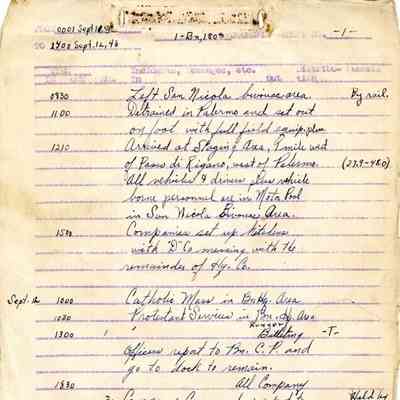 0001 Sept 11, 43
1-Bn, 180th
-1-
TO 2400 Sept. 12, 43
Incidents, Messages, etc.
0830 Left San Nicola bivouac area. By rail.
1100 Detrained in Palermo and set out
on foot with full field equip. plus
1210 Arrived at Staging Area, 1 mile west
of Passo di Rigano, west of Palermo. (27.9-48.0)
All vehicles & drivers plus vehicle
borne personnel are in Motor Pool
in San Nicola Bivouac Area.
1530 Companies set up kitchens
with D Co messing with the
remainder of Hq. Co.
Sept. 12 1000 Catholic Mass in Bn Hq. Area
1030 Protestant Services in Bn. Hq. Area
1300 Billeting -T-
Officers report to Bn. C.P. and
go to dock to remain.
1830 All Company
Held by